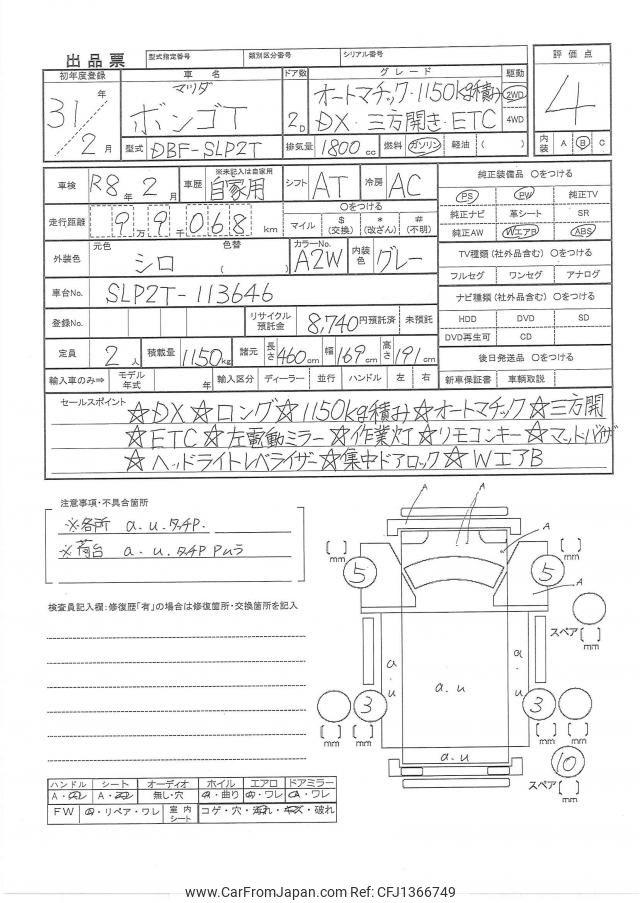 出品票 型式指定番号 類別区分番号 シリアル番号
初年度登録 車名 ドア数 グレード 駆動 評価点
31年 2月 マツダ ボンゴT 2D オートマチック・1150kg積み 2WD 4
DX・三方開き・ETC 4WD
型式 DBF-SLP2T 排気量 1800cc 燃料 ガソリン・軽油・( ) 内装 A B C
車検 R8年2月 車歴 ※未記入は自家用 自家用 シフト AT 冷房 AC 純正装備品 〇をつける
PS PW 純正TV
走行距離 9万9千068km 〇をつける マイル $(交換) *(改ざん) #(不明) 純正ナビ 革シート SR
純正AW WエアB ABS
外装色 元色 シロ 色替 ( ) カラーNo. A2W 内装色 グレー TV種類(社外品含む) 〇をつける
フルセグ ワンセグ アナログ
車台No. SLP2T-113646 ナビ種類(社外品含む) 〇をつける
登録No. リサイクル預託金 8,740円預託済 未預託 HDD DVD SD
DVD再生可 CD
定員 2人 積載量 1150kg 諸元 長さ460cm 幅169cm 高さ191cm 後日発送品 〇をつける
輸入車のみ⇒ モデル年式 年 輸入区分 ディーラー・並行 ハンドル 左・右 新車保証書 車輌取説
セールスポイント ☆DX☆ロング☆1150kg積み☆オートマチック☆三方開
☆ETC☆左電動ミラー☆作業灯☆リモコンキー☆マット・バイザ
☆ヘッドライトレベライザー☆集中ドアロック☆WエアB
注意事項・不具合箇所
※各所 a.u.タッチP.
※荷台 a.u.タッチP Pムラ
検査員記入欄:修復歴「有」の場合は修復箇所・交換箇所を記入
A A A A
[ ]mm 5 5 [ ]mm
スペア[ ]mm
a.u a.u a.u
3 3
[ ]mm [ ]mm [ ]mm [ ]mm
a.u
10
スペア[ ]mm
ハンドル シート オーディオ ホイル エアロ ドアミラー
無し・穴 曲り ワレ ワレ
FW リペア・ワレ 室内シート コゲ・穴・汚れ・キズ・破れ
www.CarFromJapan.com Ref: CFJ1366749